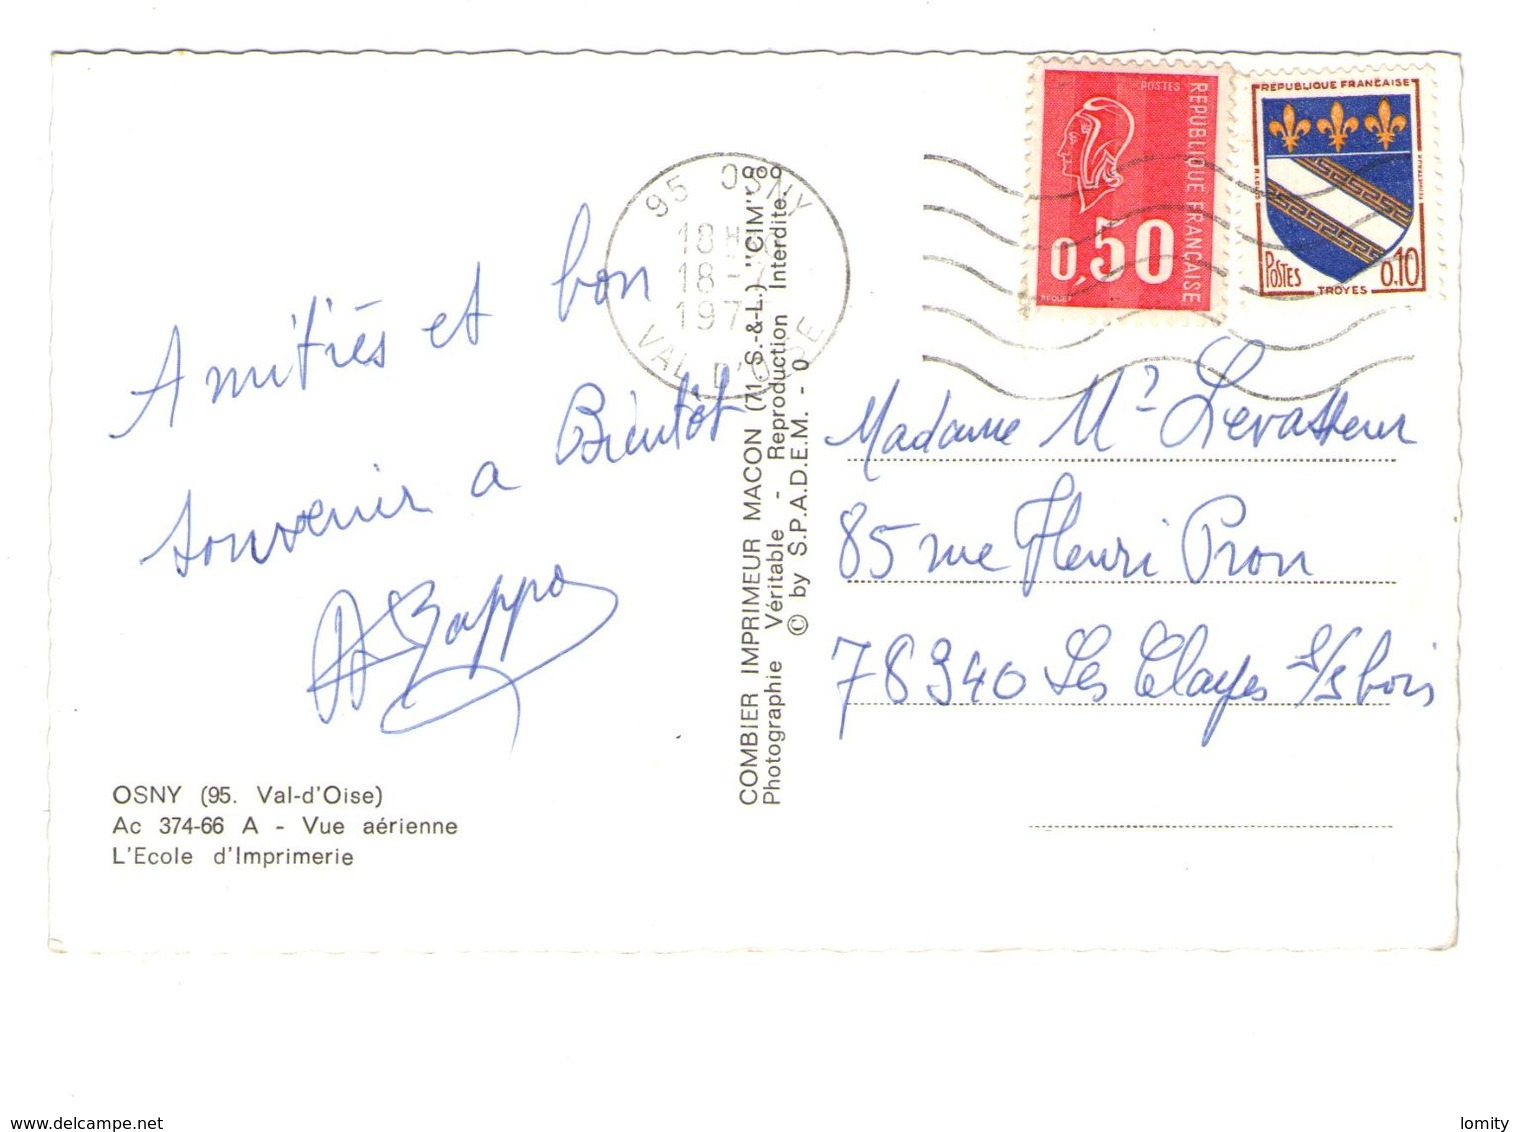 Amitiés et bon
souvenir a Bientôt
OSNY (95. Val-d'Oise)
Ac 374-66 A - Vue aérienne
L'Ecole d'Imprimerie
95 OSNY
18 H
18-7
197
VAL D'OISE
COMBIER IMPRIMEUR MACON (71. S.-&-L.) "CIM"
Photographie Véritable - Reproduction Interdite.
© by S.P.A.D.E.M. - 0
POSTES
REPUBLIQUE FRANÇAISE
0,50
REPUBLIQUE FRANÇAISE
POSTES
0,10
TROYES
Madame Mr Levasseur
85 rue Henri Prou
78340 Les Clayes s/s bois
delcampe.net
lomity